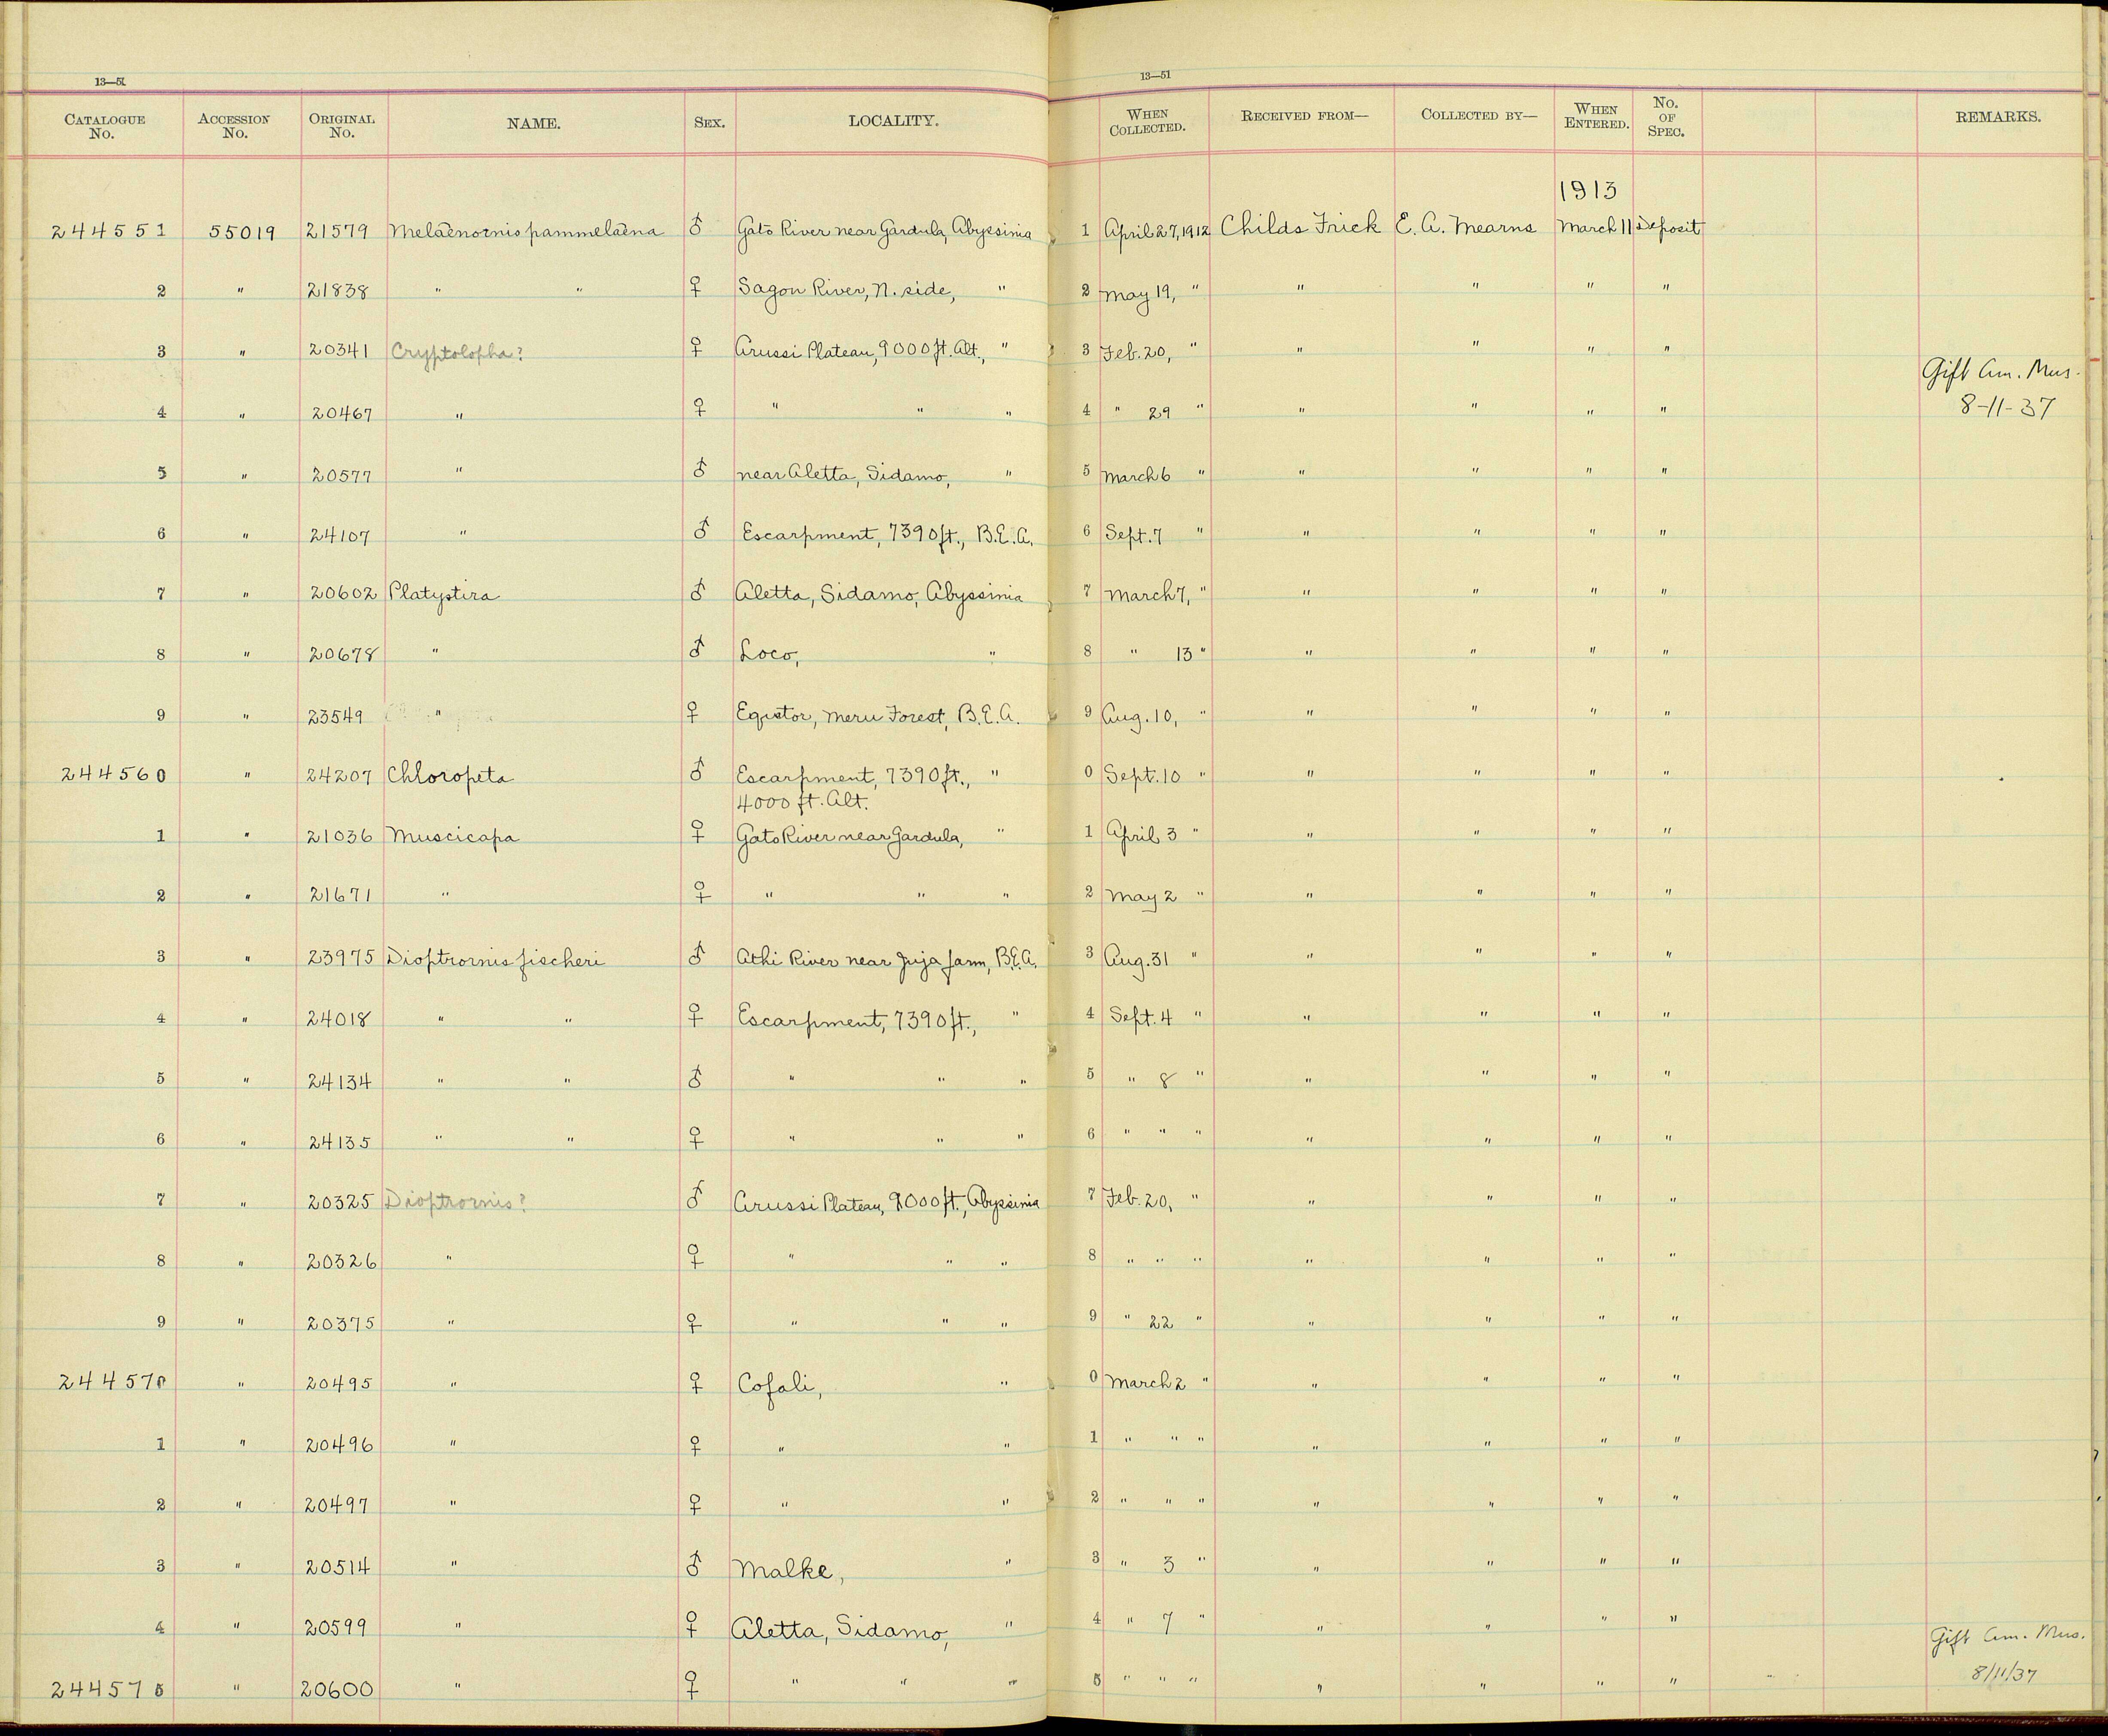 13—51
13—51
CATALOGUE No. ACCESSION No. ORIGINAL No. NAME. SEX. LOCALITY. WHEN COLLECTED. RECEIVED FROM— COLLECTED BY— WHEN ENTERED. No. OF SPEC. REMARKS.
1913
244551 55019 21579 Melaenornis pammelaena ♂ Gato River near Gardula, Abyssinia 1 April 27, 1912 Childs Frick E. A. Mearns March 11 Deposit
2 " 21838 " " ♀ Sagon River, N. side, " 2 May 19, " " " " "
3 " 20341 Cryptolopha? ♀ Arussi Plateau, 9000 ft. Alt., " 3 Feb. 20, " " " " "
Gift Am. Mus.
4 " 20467 " ♀ " " " 4 " 29 " " " " " 8-11-37
5 " 20577 " ♂ near Aletta, Sidamo, " 5 March 6 " " " " "
6 " 24107 " ♂ Escarpment, 7390 ft., B.E.A. 6 Sept. 7 " " " " "
7 " 20602 Platystira ♂ Aletta, Sidamo, Abyssinia 7 March 7, " " " " "
8 " 20678 " ♂ Loco, " 8 " 13 " " " " "
9 " 23549 " ♀ Equator, Meru Forest, B.E.A. 9 Aug. 10, " " " " "
244560 " 24207 Chloropeta ♂ Escarpment, 7390 ft., " 0 Sept. 10 " " " " "
4000 ft. Alt.
1 " 21036 Muscicapa ♀ Gato River near Gardula, " 1 April 3 " " " " "
2 " 21671 " ♀ " " " 2 May 2 " " " " "
3 " 23975 Dioptrornis fischeri ♂ Athi River near Juja farm, B.E.A. 3 Aug. 31 " " " " "
4 " 24018 " " ♀ Escarpment, 7390 ft., " 4 Sept. 4 " " " " "
5 " 24134 " " ♂ " " " 5 " 8 " " " " "
6 " 24135 " " ♀ " " " 6 " " " " " " "
7 " 20325 Dioptrornis? ♂ Arussi Plateau, 9000 ft., Abyssinia 7 Feb. 20, " " " " "
8 " 20326 " ♀ " " " 8 " " " " " " "
9 " 20375 " ♀ " " " 9 " 22 " " " " "
244570 " 20495 " ♀ Cofali, " 0 March 2 " " " " "
1 " 20496 " ♀ " " 1 " " " " " " "
2 " 20497 " ♀ " " 2 " " " " " " "
3 " 20514 " ♂ Malke, " 3 " 3 " " " " "
4 " 20599 " ♀ Aletta, Sidamo, " 4 " 7 " " " " "
Gift Am. Mus.
244575 " 20600 " ♀ " " " 5 " " " " " " " 8/11/37